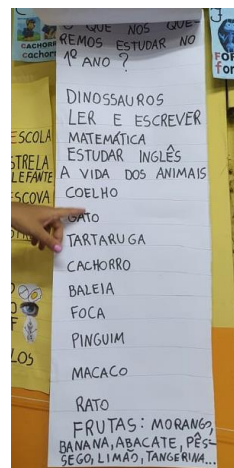 O QUE NOS QUE-
REMOS ESTUDAR NO
1º ANO ?
DINOSSAUROS
LER E ESCREVER
MATEMÁTICA
ESTUDAR INGLÊS
A VIDA DOS ANIMAIS
COELHO
GATO
TARTARUGA
CACHORRO
BALEIA
FOCA
PINGUIM
MACACO
RATO
FRUTAS: MORANGO,
BANANA, ABACATE, PÊS-
SEGO, LIMÃO, TANGERINA...
CACHORR
cachorr
ESCOLA
STRELA
LEFANTE
ESCOVA
LOS
FO
fo